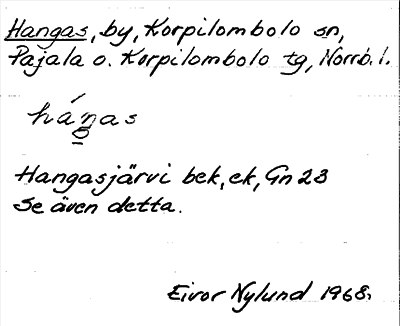 Hangas, by, Korpilombolo sn,
Pajala o. Korpilombolo tg, Norrb. l.
háŋas
Hangasjärvi bek, ek, Gn 23
Se även detta.
Eivor Nylund 1968.